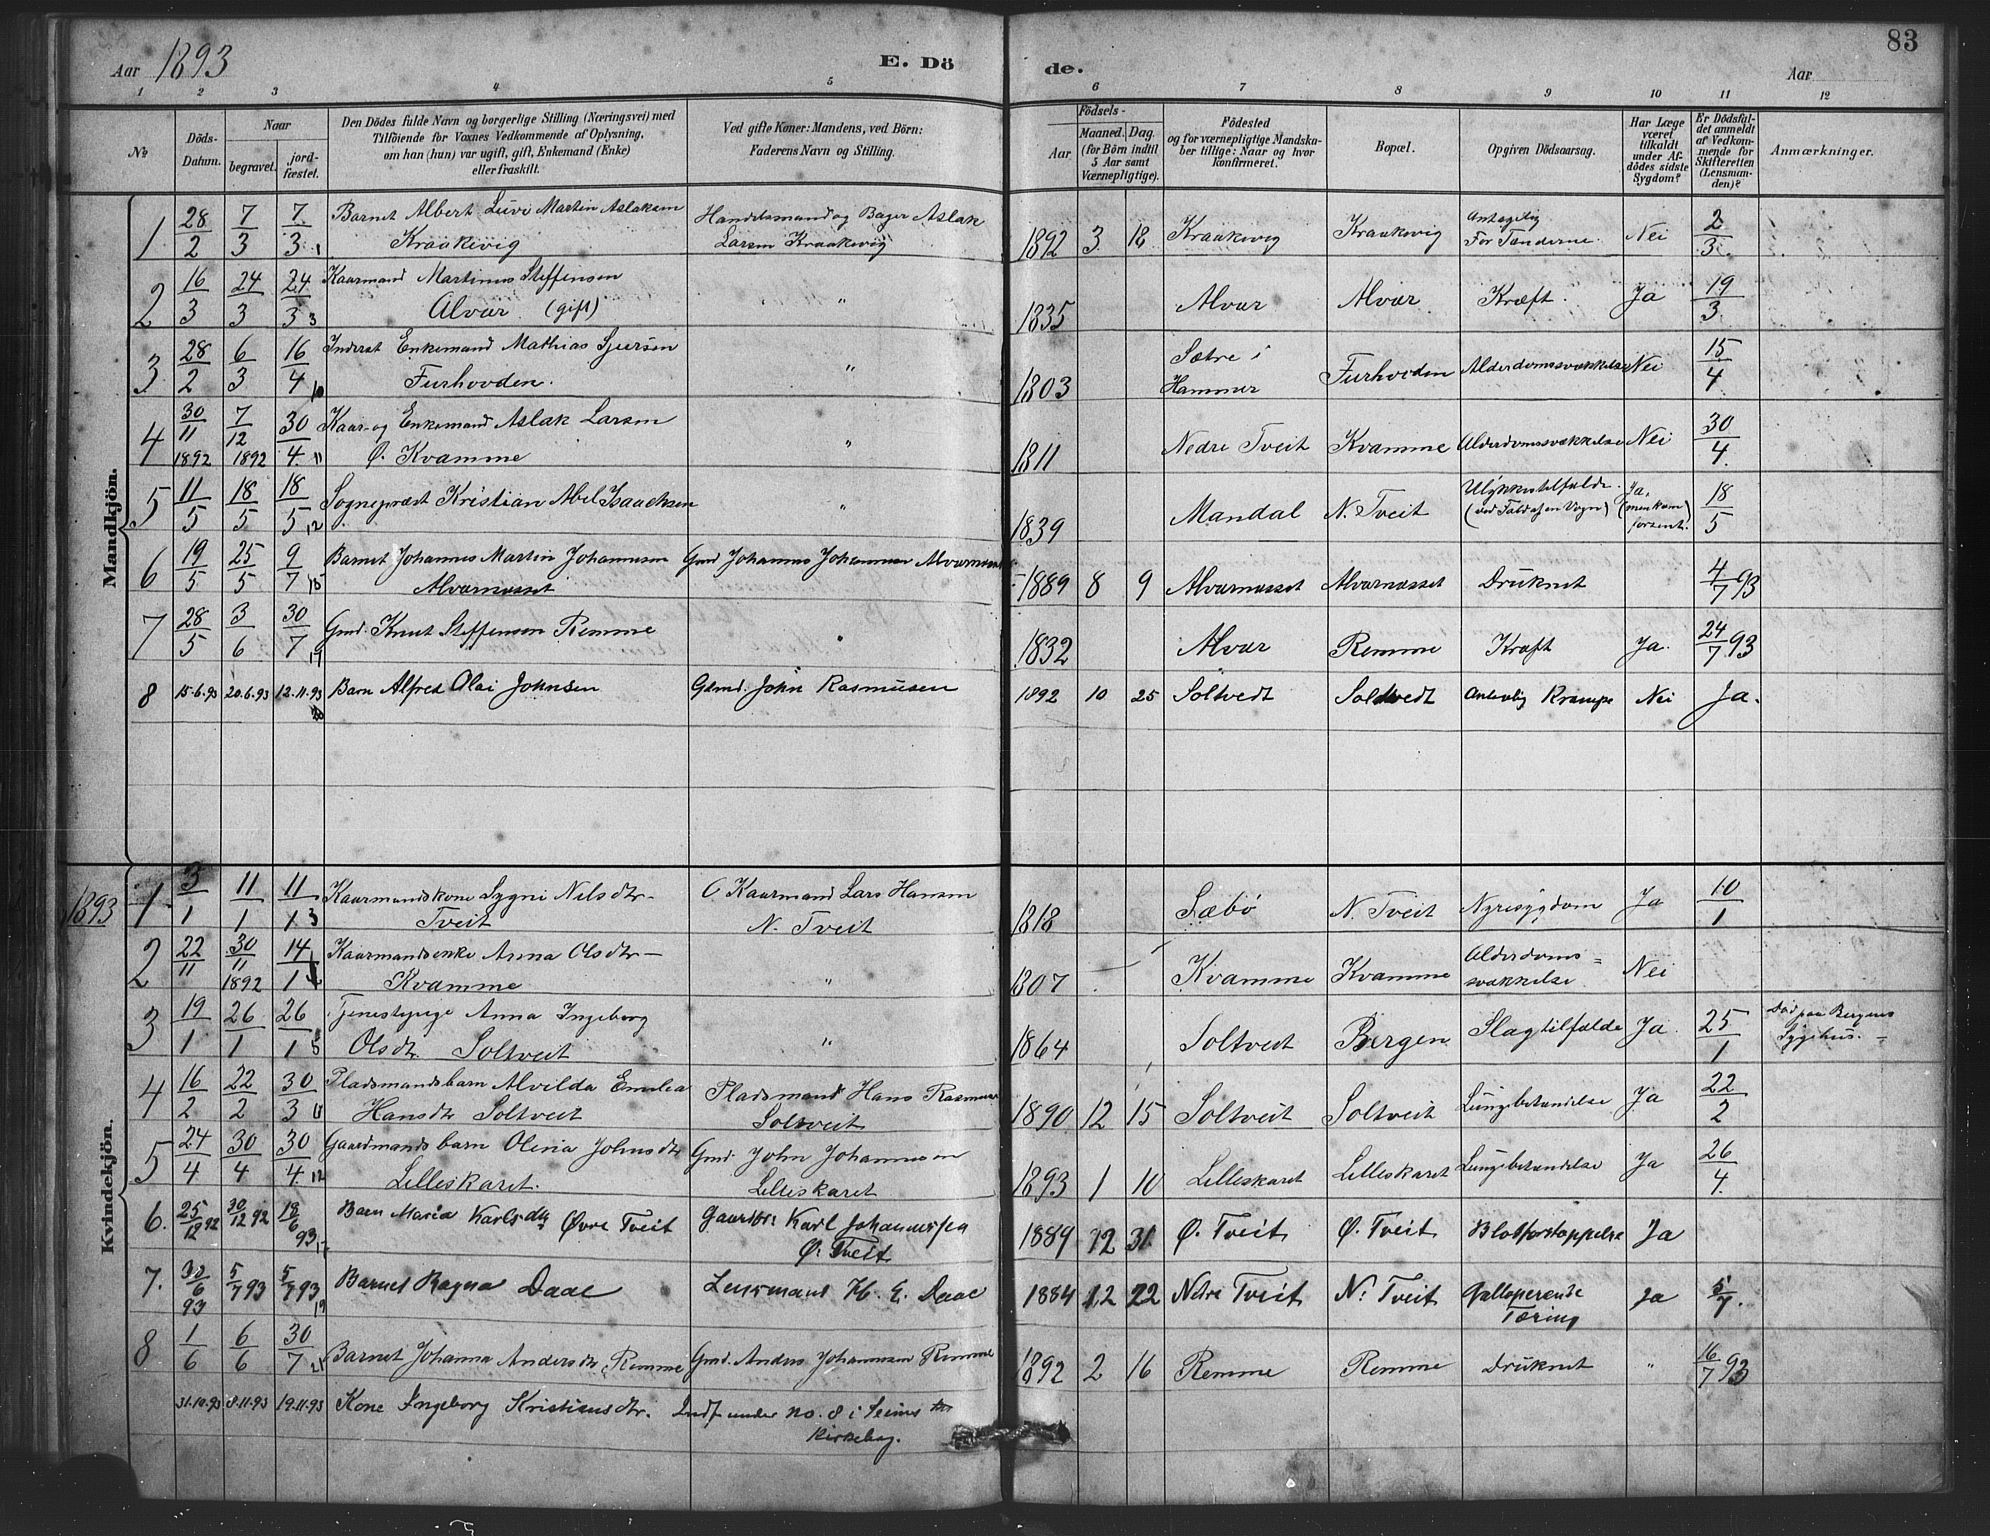 Aar 1893 E. Dö de. Aar 83
1 2 3 4 5 6 7 8 9 10 11 12
№
Döds-
Datum.
Naar
begravet.
jord-
fæstet.
Den Dödes fulde Navn og borgerlige Stilling (Næringsvei) med
Tilföiende for Voxnes Vedkommende af Oplysning,
om han (hun) var ugift, gift, Enkemand (Enke)
eller fraskilt.
Ved gifte Koner: Mandens, ved Börn:
Faderens Navn og Stilling.
Födsels-
Aar
Maaned. Dag.
(for Börn indtil
5 Aar samt
Værnepligtige).
Födested
og for værnepligtige Mandska-
ber tillige: Naar og hvor
konfirmeret.
Bopæl.
Opgiven Dödsaarsag.
Har Læge
været
tilkaldt
under Af-
dödes sidste
Sygdom?
Er Dödsfal-
det anmeldt
af Vedkom-
mende for
Skifteretten
(Lensman-
den)?
Anmærkninger.
Mandkjön.
1 28/2 7/3 7/3 1 Barnet Albert Martin Aslaksen Handelsmand og Bager Aslak 1892 3 18 Kraakevig Kraakevig Antagelig Nei 2/3
Kraakevig Larsen Kraakevig For Tænderne.
2 16/3 24/3 24/3 3 Kaarmand Martinus Steffensen " " 1835 Alvær Alvær Kræft. Ja 19/3
Alvær (gift)
3 28/2 6/3 16/4 10 Inderst Enkemand Mathias Sjursen " 1803 Sætre i Furhovden Alderdomssvækkelse Nei 15/4
Furhovden. Hammer
4 30/11 1892 7/12 1892 30/4 11 Kaar- og Enkemand Aslak Larsen " 1811 Nedre Tveit Kvamme Alderdomssvækkelse Nei 30/4
Ø. Kvamme
5 11/5 18/5 18/5 12 Sognepræst Kristian Abel Isaachsen " 1839 Mandal N. Tveit Ulykkestilfælde. Ja, 18/5
(ved Fald af en Vogn) (men kom
forsent.
6 19/5 25/5 9/7 15 Barnet Johannes Martin Johannesen Gmd Johannes Johannesen Alværnesset 1889 8 9 Alværnæsset Alværnæsset Druknet 4/7 93
Alværnæsset
7 28/5 3/6 30/7 17 Gmd. Knut Steffensen Remme " 1832 Alvær Remme Kræft Ja. 24/7 93
8 15.6.93 20.6.93 12.11.93 Barn Alfred Olai Johnsen Gdmd. John Rasmusen 1892 10 25 Soltvedt Soltvedt Antaglig Krampe Nei Ja.
Kvindekjön.
1893
1 3/1 11/1 11/1 3 Kaarmandskone Sygni Nilsdtr- Kaarmand Lars Hansen 1818 Sæbø N. Tveit Nyresygdom Ja 10/1
Tveit N. Tveit
2 22/11 30/11 1892 14/1 Kaarmandsenke Anna Olsdtr- " 1807 Kvamme Kvamme Alderdoms= Nei
Kvamme svækkelse
3 19/1 26/1 26/1 5 Tjenestepige Anna Ingeborg " 1864 Soltveit Bergen Slagtilfælde Ja. 25/1 Død paa Bergens
Olsdtr. Soltveit Sygehus.
4 16/2 22/2 30/3 Pladsmandsbarn Alvilda Emilia Pladsmand Hans Rasmusen 1890 12 15 Soltveit Soltveit Lungebetændelse Ja 22/2
Hansdtr Soltveit Soltveit
5 24/4 30/4 30/4 12 Gaardmandsbarn Olina Johnsdtr Gmd. John Johannesen 1893 1 10 Lilleskaret Lilleskaret Lungebetændelse Ja 26/4
Lilleskaret. Lilleskaret
6. 25/12 92 30/12 92 18/6 93 17 Barn Maria Karlsdtr Øvre Tveit Gaardbr. Karl Johannesen 1889 12 31. Ø. Tveit Ø. Tveit Blodforstoppelse Ja
Ø. Tveit
7. 30/6 93 5/7 93 5/7 93 19 Barnet Ragna Daae Lensmand H. E. Daae 1884 12 22 Nedre Tveit N. Tveit Galloperende Ja 5/7.
Tæring
8 1/6 6/6 30/7 21 Barnet Johanna Andersdtr. Remme Gmd. Anders Johannesen Remme 1892 2 16 Remme Remme Druknet " 16/7 93
31.10.93 8.11.93 19.11.93 Kone Ingeborg Kristiansdtr. Indf. under no. 8 i Seims
Kirkebog.